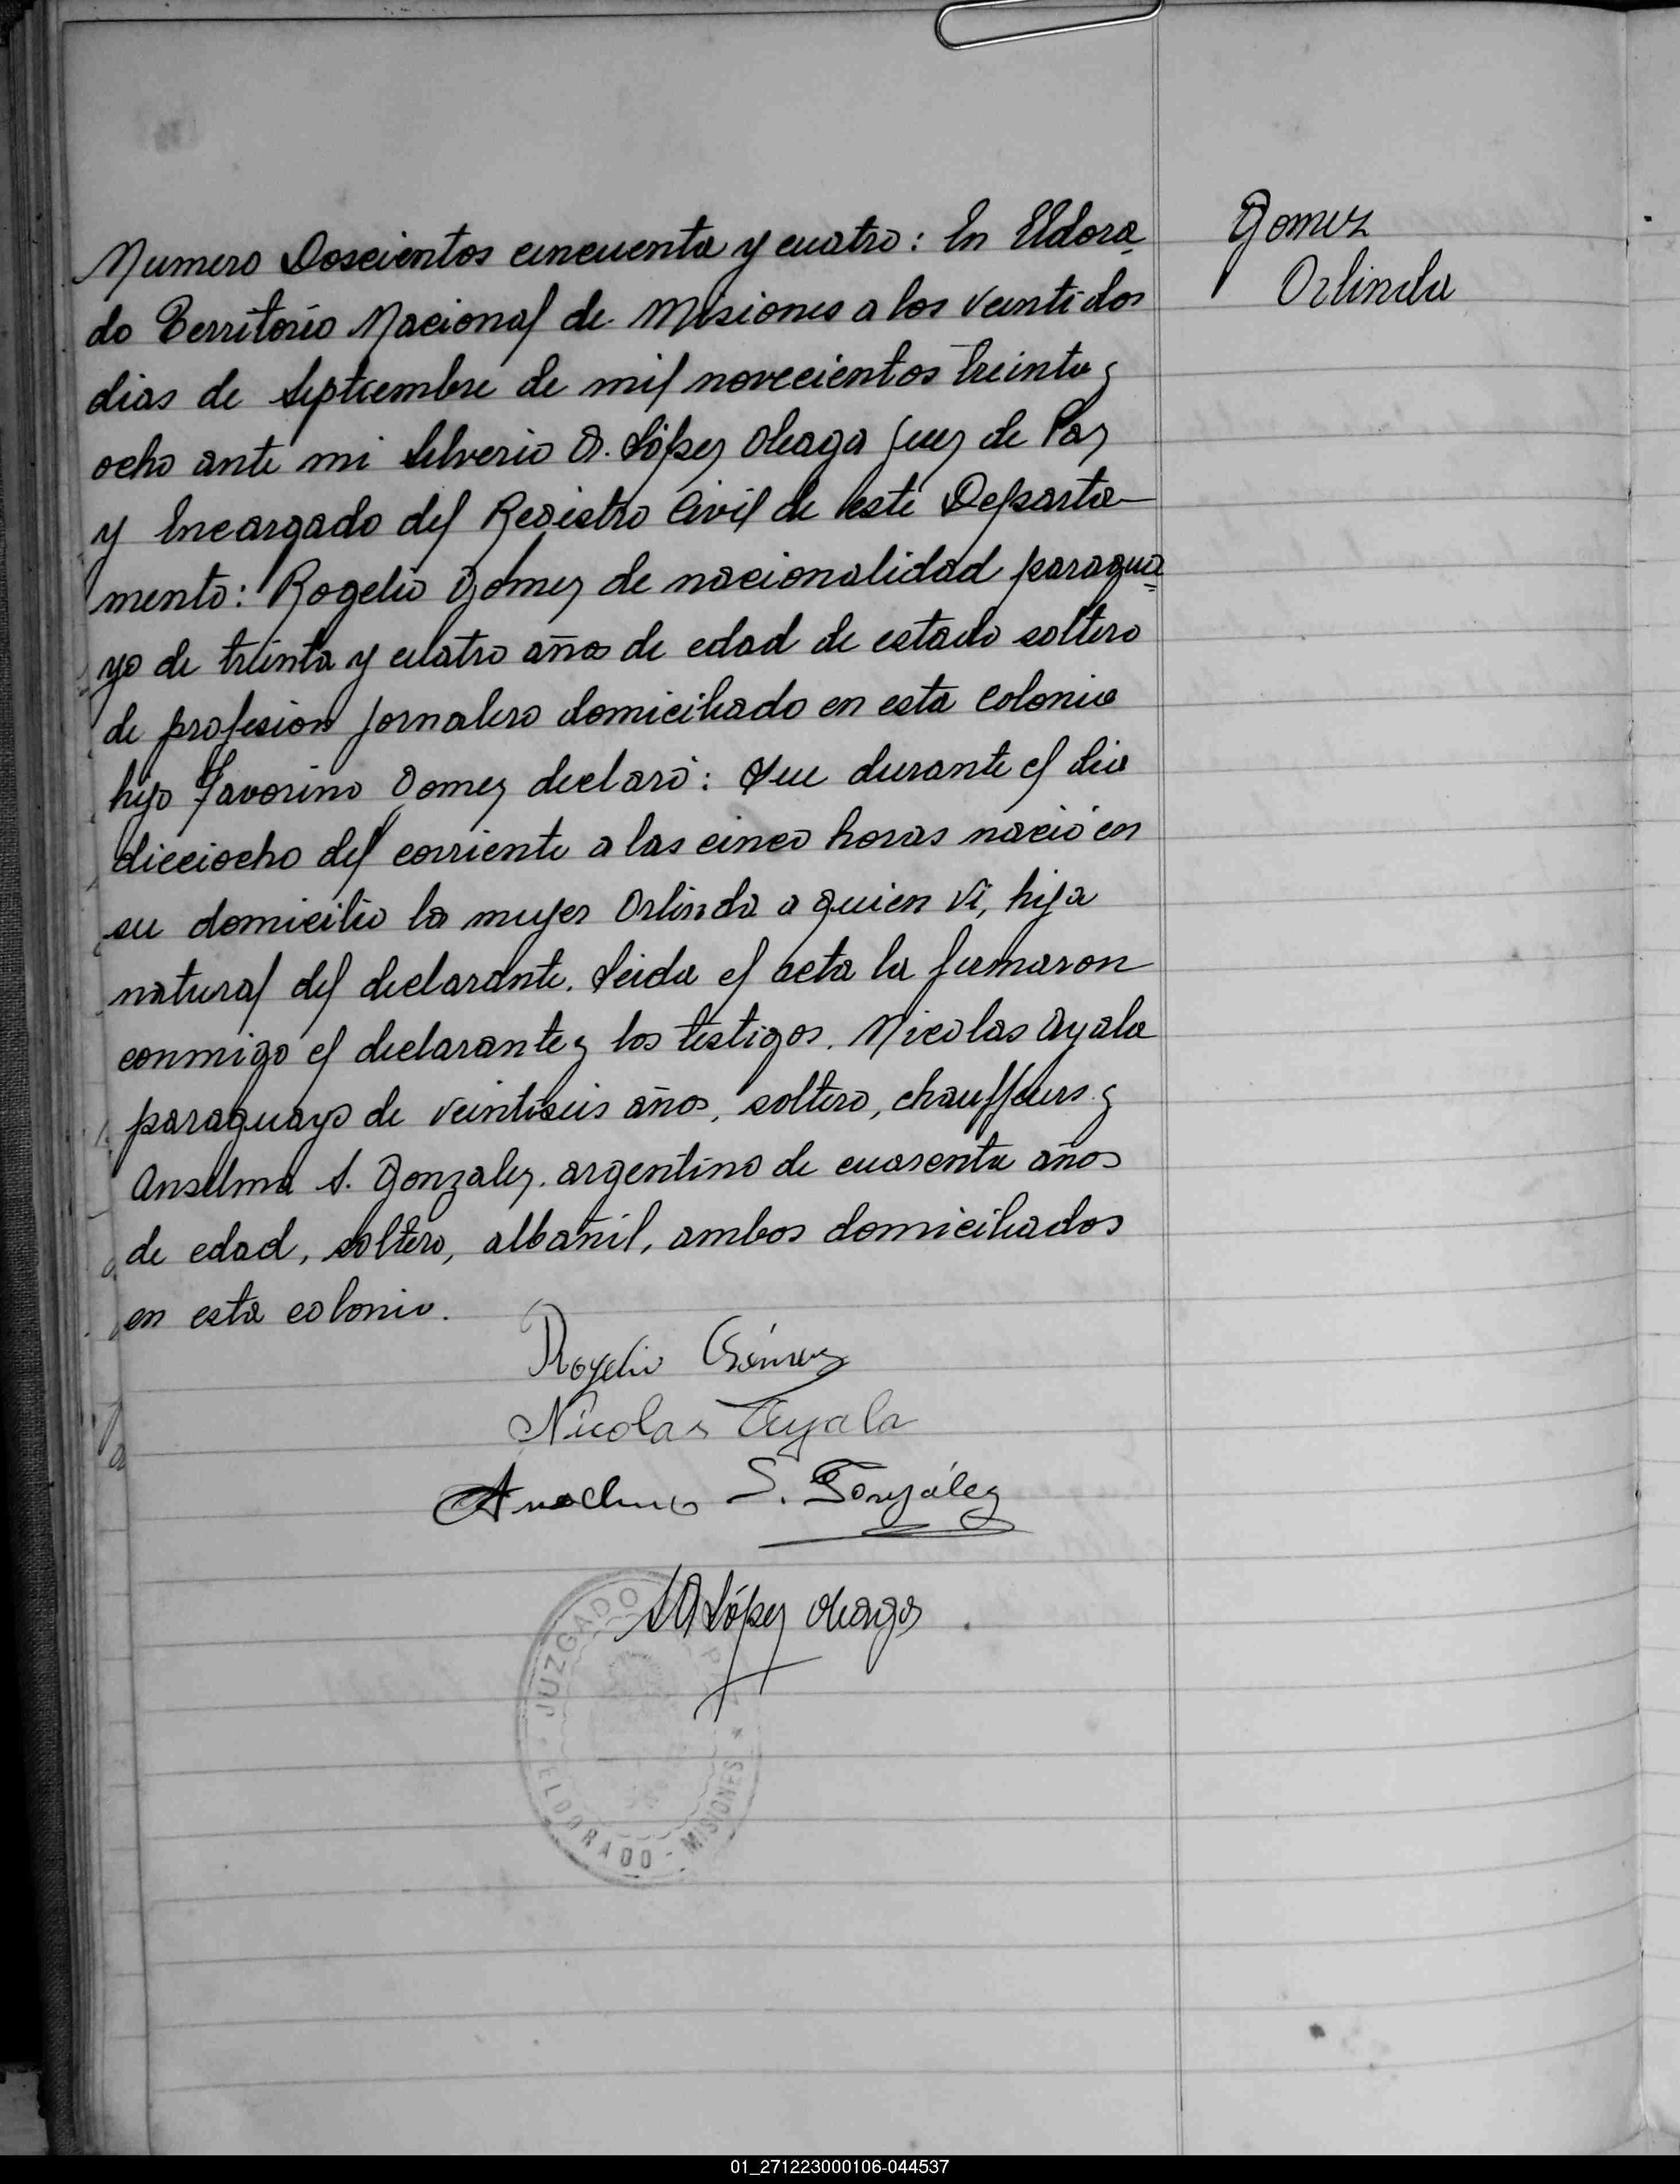 Numero Doscientos cincuenta y cuatro: En Eldora
do Territorio Nacional de Misiones a los veintidos
dias de septiembre de mil novecientos treinta y
ocho ante mi Silverio O. López Oleaga Juez de Paz
y Encargado del Registro Civil de este Departa
mento: Rogelio Gomez de nacionalidad paragua
yo de treinta y cuatro años de edad de estado soltero
de profesion jornalero domiciliado en esta colonia
hijo Favorino Gomez declaró: Que durante el dia
dieciocho del corriente a las cinco horas nació en
su domicilio la mujer Orlinda a quien vi, hija
natural del declarante. Leida el acta la firmaron
conmigo el declarante y los testigos. Nicolas Ayala
paraguayo de veintiseis años, soltero, chauffeurs y
Anselmo S. Gonzalez. argentino de cuarenta años
de edad, soltero, albañil, ambos domiciliados
en esta colonia.
Gomez
Orlinda
Rogelio Gómez
Nicolas Ayala
Anselmo S. González
López Oleaga
JUZGADO
ELDORADO - MISIONES
01_271223000106-044537